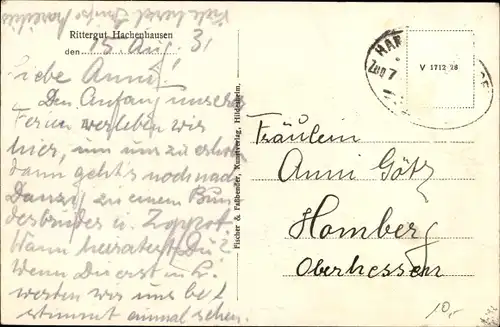 Viele herzl. Grüße
Rittergut Hachenhausen
den 15. Aug. 31
Liebe Anni!
Den Anfang unserer
Ferien verleben wir
hier, um uns zu erholen
dann geht's noch nach
Danzig zu einem Bun
desbruder u. Zoppot.
Wann heiratest Du?
Wenn Du erst in
werden wir uns be
stimmt einmal sehen.
Fischer & Faßbender, Kunstverlag, Hildesheim.
HAN
Zug 7
V 1712 28
Fräulein
Anni Götz
Homberg
Oberhessen
10,-